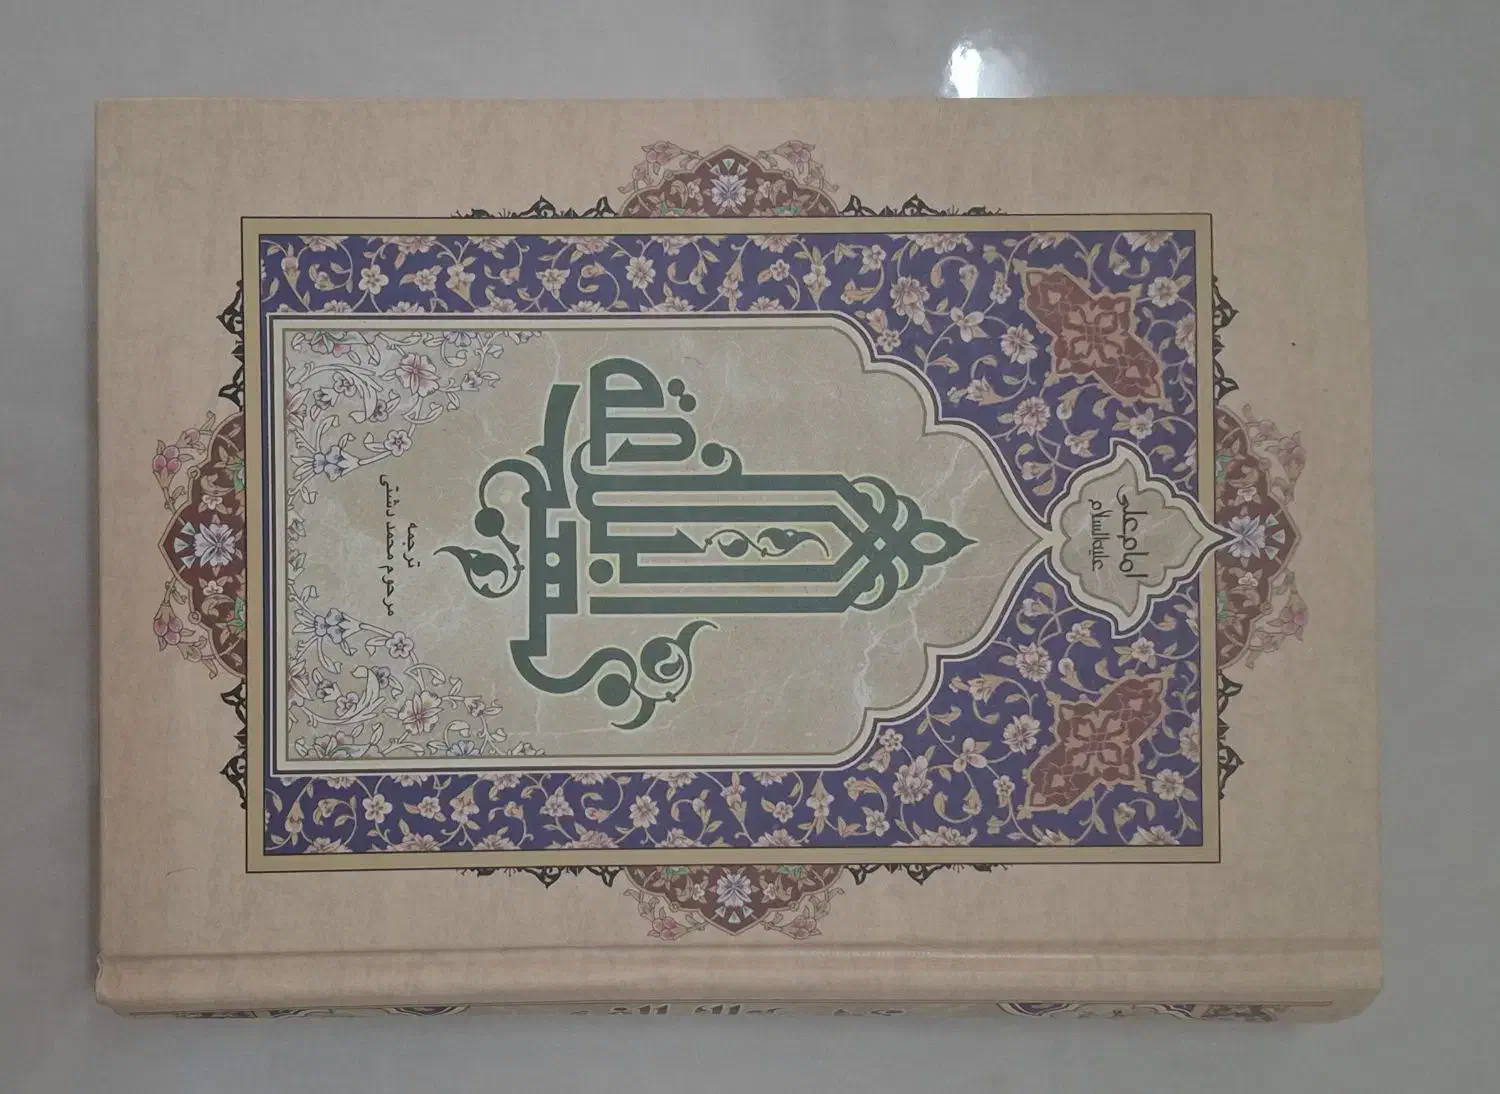 امام علی
علیه السلام
نهج البلاغه
ترجمه
مرحوم محمد دشتی